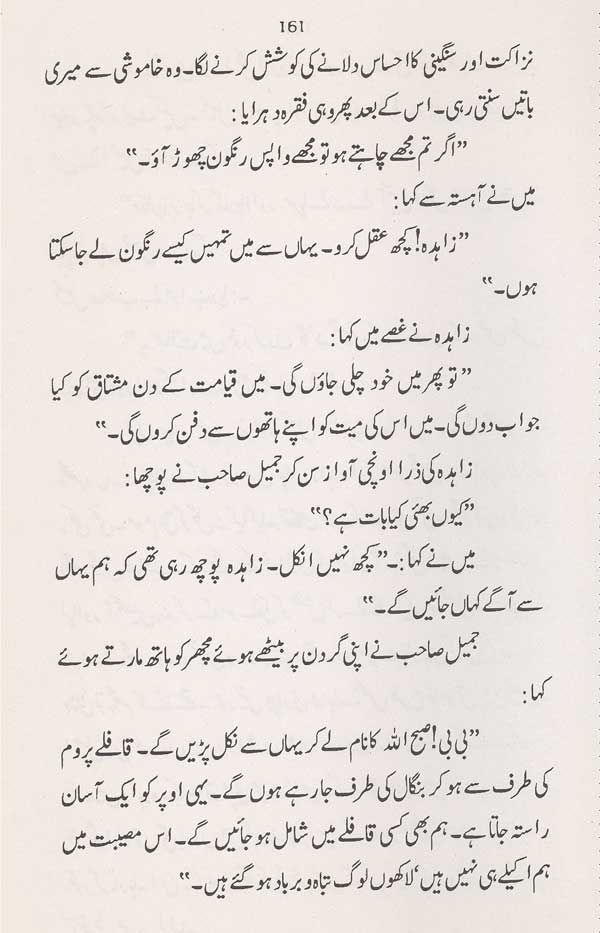 161
نزاکت اور سنگینی کا احساس دلانے کی کوشش کرنے لگا۔ وہ خاموشی سے میری
باتیں سنتی رہی۔ اس کے بعد پھر وہی فقرہ دہرایا :
”اگر تم مجھے چاہتے ہو تو مجھے واپس رنگون چھوڑ آؤ۔“
میں نے آہستہ سے کہا :
”زاہدہ! کچھ عقل کرو۔ یہاں سے میں تمہیں کیسے رنگون لے جا سکتا
ہوں۔“
زاہدہ نے غصے میں کہا :
”تو پھر میں خود چلی جاؤں گی۔ میں قیامت کے دن مشتاق کو کیا
جواب دوں گی۔ میں اس کی میت کو اپنے ہاتھوں سے دفن کروں گی۔“
زاہدہ کی ذرا اونچی آواز سن کر جمیل صاحب نے پوچھا :
”کیوں بھئی کیا بات ہے؟“
میں نے کہا :۔ ”کچھ نہیں انکل۔ زاہدہ پوچھ رہی تھی کہ ہم یہاں
سے آگے کہاں جائیں گے۔“
جمیل صاحب نے اپنی گردن پر بیٹھے ہوئے مچھر کو ہاتھ مارتے ہوئے
کہا :
”بی بی! صبح اللہ کا نام لے کر یہاں سے نکل پڑیں گے۔ قافلے پروم
کی طرف سے ہو کر بنگال کی طرف جا رہے ہوں گے۔ یہی اوپر کو ایک آسان
راستہ جاتا ہے۔ ہم بھی کسی قافلے میں شامل ہو جائیں گے۔ اس مصیبت میں
ہم اکیلے ہی نہیں ہیں‘ لاکھوں لوگ تباہ و برباد ہو گئے ہیں۔“